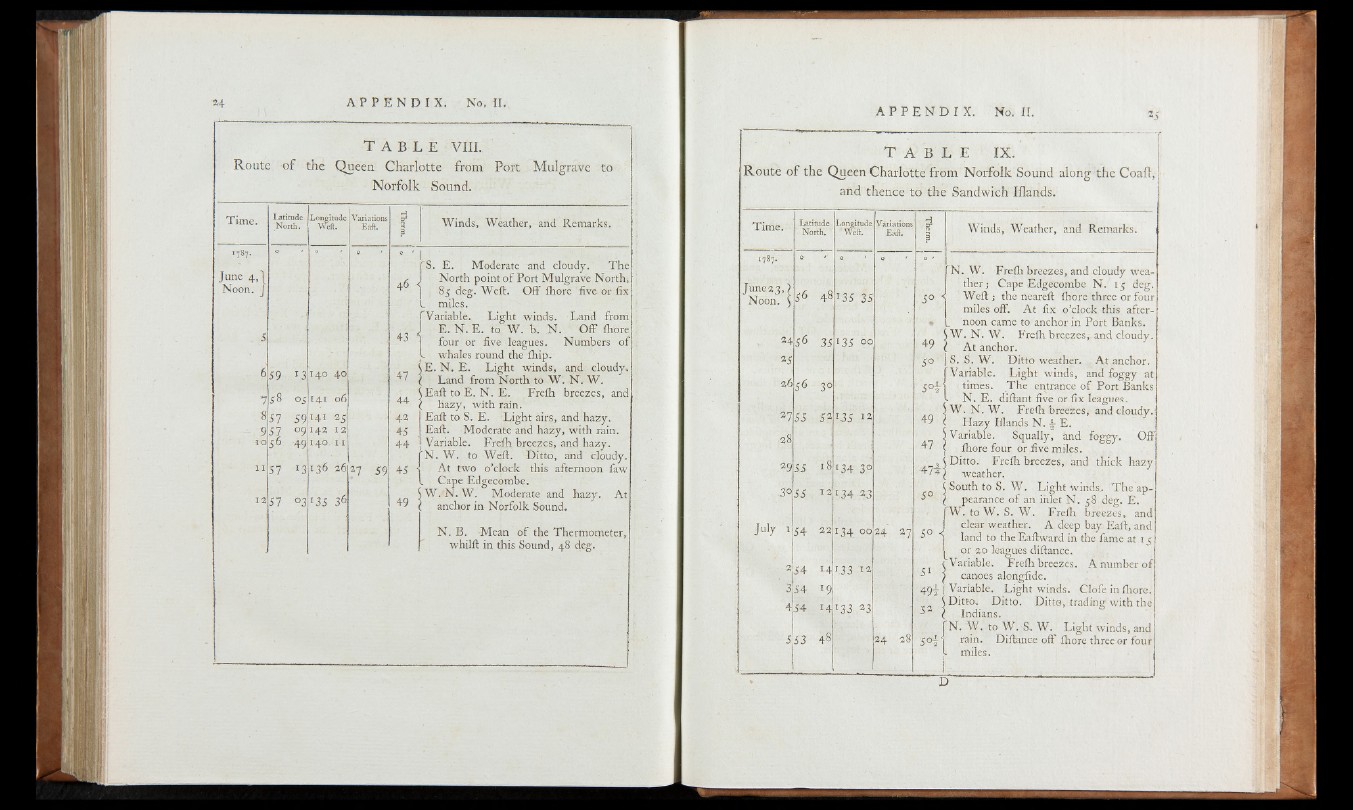 24 APPENDIX. No. II.
TABLE VIII.
Route of the Queen Charlotte from Port Mulgrave to
Norfolk Sound.
Time. Latitude North. Longitude Weſt. Variations Eaſt. Therm. Winds, Weather, and Remarks.
1787. ° ′ ° ′ ° ′ ° ′
June 4, Noon. 46 S. E. Moderate and cloudy. The
North point of Port Mulgrave North,
85 deg. Weſt. Off ſhore five or ſix
miles.
5 43 Variable. Light winds. Land from
E. N. E. to W. b. N. Off ſhore
four or five leagues. Numbers of
whales round the ſhip.
6 59 13 140 40 47 E. N. E. Light winds, and cloudy.
Land from North to W. N. W.
7 58 05 141 06 44 Eaſt to E. N. E. Freſh breezes, and
hazy, with rain.
8 57 59 141 25 42 Eaſt to S. E. Light airs, and hazy.
9 57 09 142 12 45 Eaſt. Moderate and hazy, with rain.
10 56 49 140 11 44 Variable. Freſh breezes, and hazy.
11 57 13 136 26 27 59 45 N. W. to Weſt. Ditto, and cloudy.
At two o'clock this afternoon ſaw
Cape Edgecombe.
12 57 03 135 36 49 W. N. W. Moderate and hazy. At
anchor in Norfolk Sound.
N. B. Mean of the Thermometer,
whilſt in this Sound, 48 deg.
APPENDIX. No. II. 25
TABLE IX.
Route of the Queen Charlotte from Norfolk Sound along the Coaſt,
and thence to the Sandwich Iſlands.
Time. Latitude North. Longitude Weſt. Variations Eaſt. Therm. Winds, Weather, and Remarks.
1787. ° ′ ° ′ ° ′ ° ′
June 23, Noon. 56 48 135 35 50 N. W. Freſh breezes, and cloudy wea-
ther; Cape Edgecombe N. 15 deg.
Weſt; the neareſt ſhore three or four
miles off. At ſix o'clock this after-
noon came to anchor in Port Banks.
24 56 35 135 00 49 W. N. W. Freſh breezes, and cloudy.
At anchor.
25 50 S. S. W. Ditto weather. At anchor.
26 56 30 50½ Variable. Light winds, and foggy at
times. The entrance of Port Banks
N. E. diſtant five or ſix leagues.
27 55 52 135 12 49 W. N. W. Freſh breezes, and cloudy.
Hazy Iſlands N. ½ E.
28 47 Variable. Squally, and foggy. Off
ſhore four or five miles.
29 55 18 134 30 47½ Ditto. Freſh breezes, and thick hazy
weather.
30 55 12 134 23 50 South to S. W. Light winds. The ap-
pearance of an inlet N. 58 deg. E.
July 1 54 22 134 00 24 27 50 W. to W. S. W. Freſh breezes, and
clear weather. A deep bay Eaſt, and
land to the Eaſtward in the ſame at 15
or 20 leagues diſtance.
2 54 14 133 12 51 Variable. Freſh breezes. A number of
canoes alongſide.
3 54 19 49½ Variable. Light winds. Cloſe in ſhore.
4 54 14 133 23 52 Ditto. Ditto. Ditto, trading with the
Indians.
5 53 48 24 28 50½ N. W. to W. S. W. Light winds, and
rain. Diſtance off ſhore three or four
miles.
D